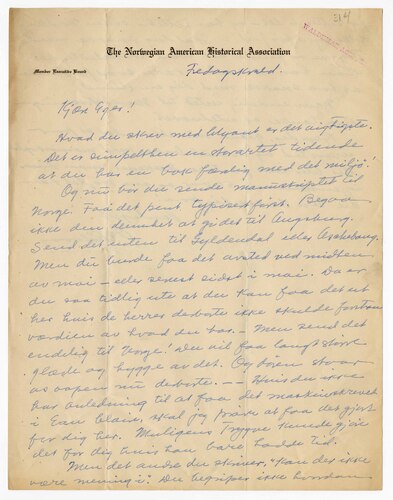 314
The Norwegian American Historical Association
Member Executive Board
Fredagskveld.
Kjære Eger!
Hvad du skrev med blyant er det vigtigste.
Det er simpelthen en storartet tidende
at du har en bok færdig med det miljø!
Og nu bør du sende manuskriptet til
Norge. Faa det pent typized først. Begaa
ikke den dumhet at gi det til Augsburg.
Send det enten til Gyldendal eller Aschehoug.
Men du burde faa det avsted ved midten
av mai – eller senest sidst i mai. Da er
du saa tidlig ute at du kan faa det ut
her hvis de herrer derborte ikke skulde forstaa
værdien av hvad du har. – Men send det
endelig til Norge! Du vil faa langt større
glæde og hygge av det. Og døren staar
os aapen nu derborte. – – Hvis du ikke
har anledning til at faa det maskinskrevet
i Eau Claire, skal jeg prøve at faa det gjort
for dig her. Muligens Trygve kunde gjøre
det for dig hvis han bare hadde tid.
Men det andre du skriver, "Kan des ikke
være mening i! Du begriper ikke hvordan